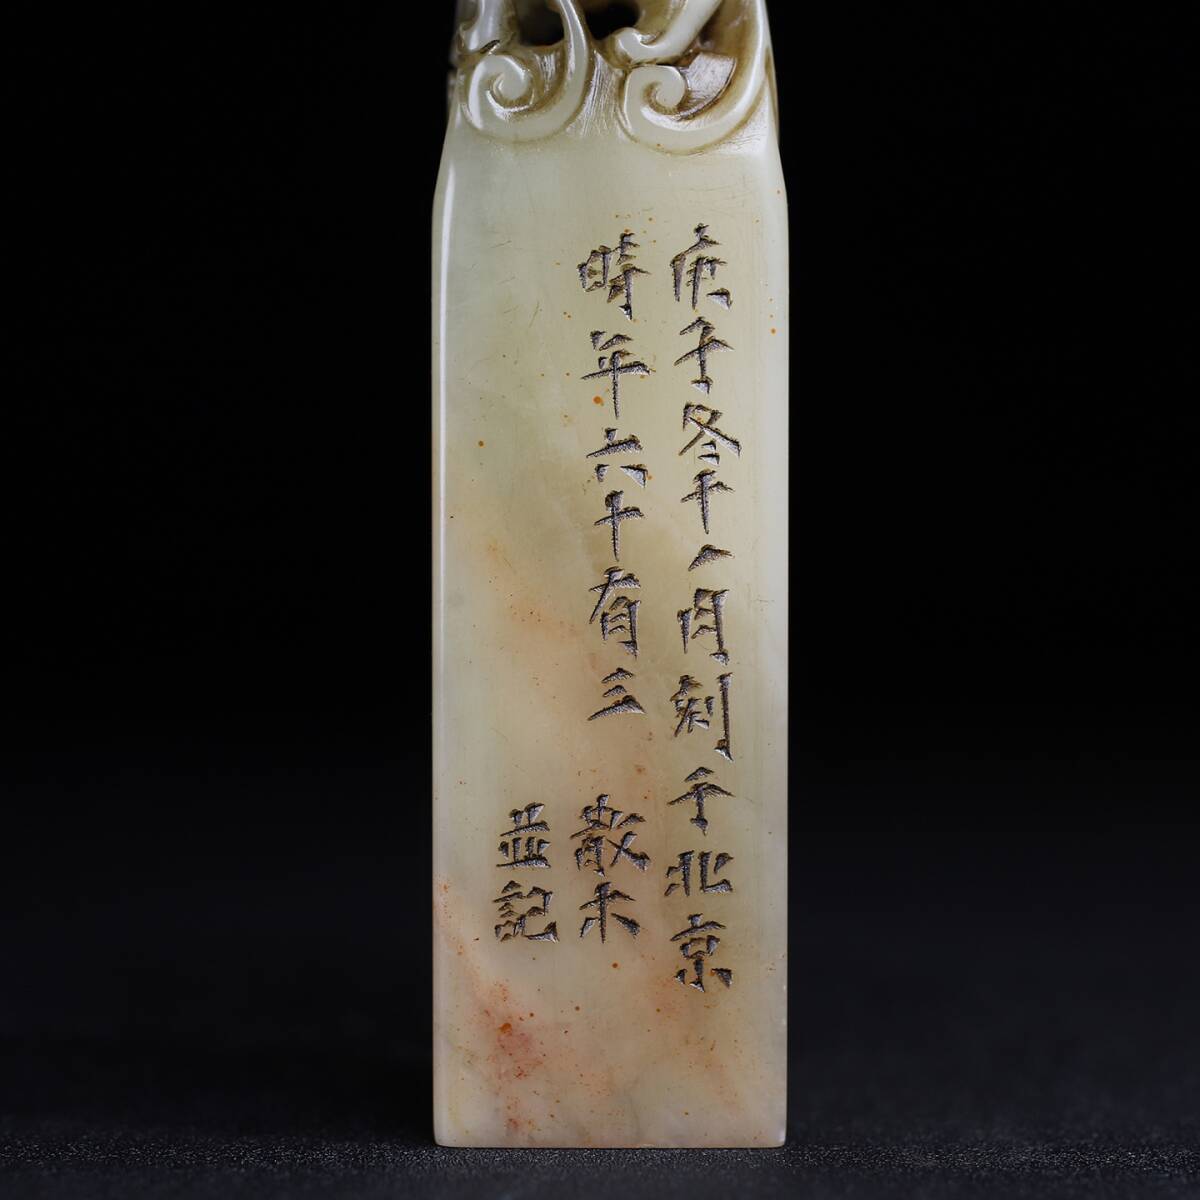 庚子冬十一月刻于北京
時年六十有三 散木
並記